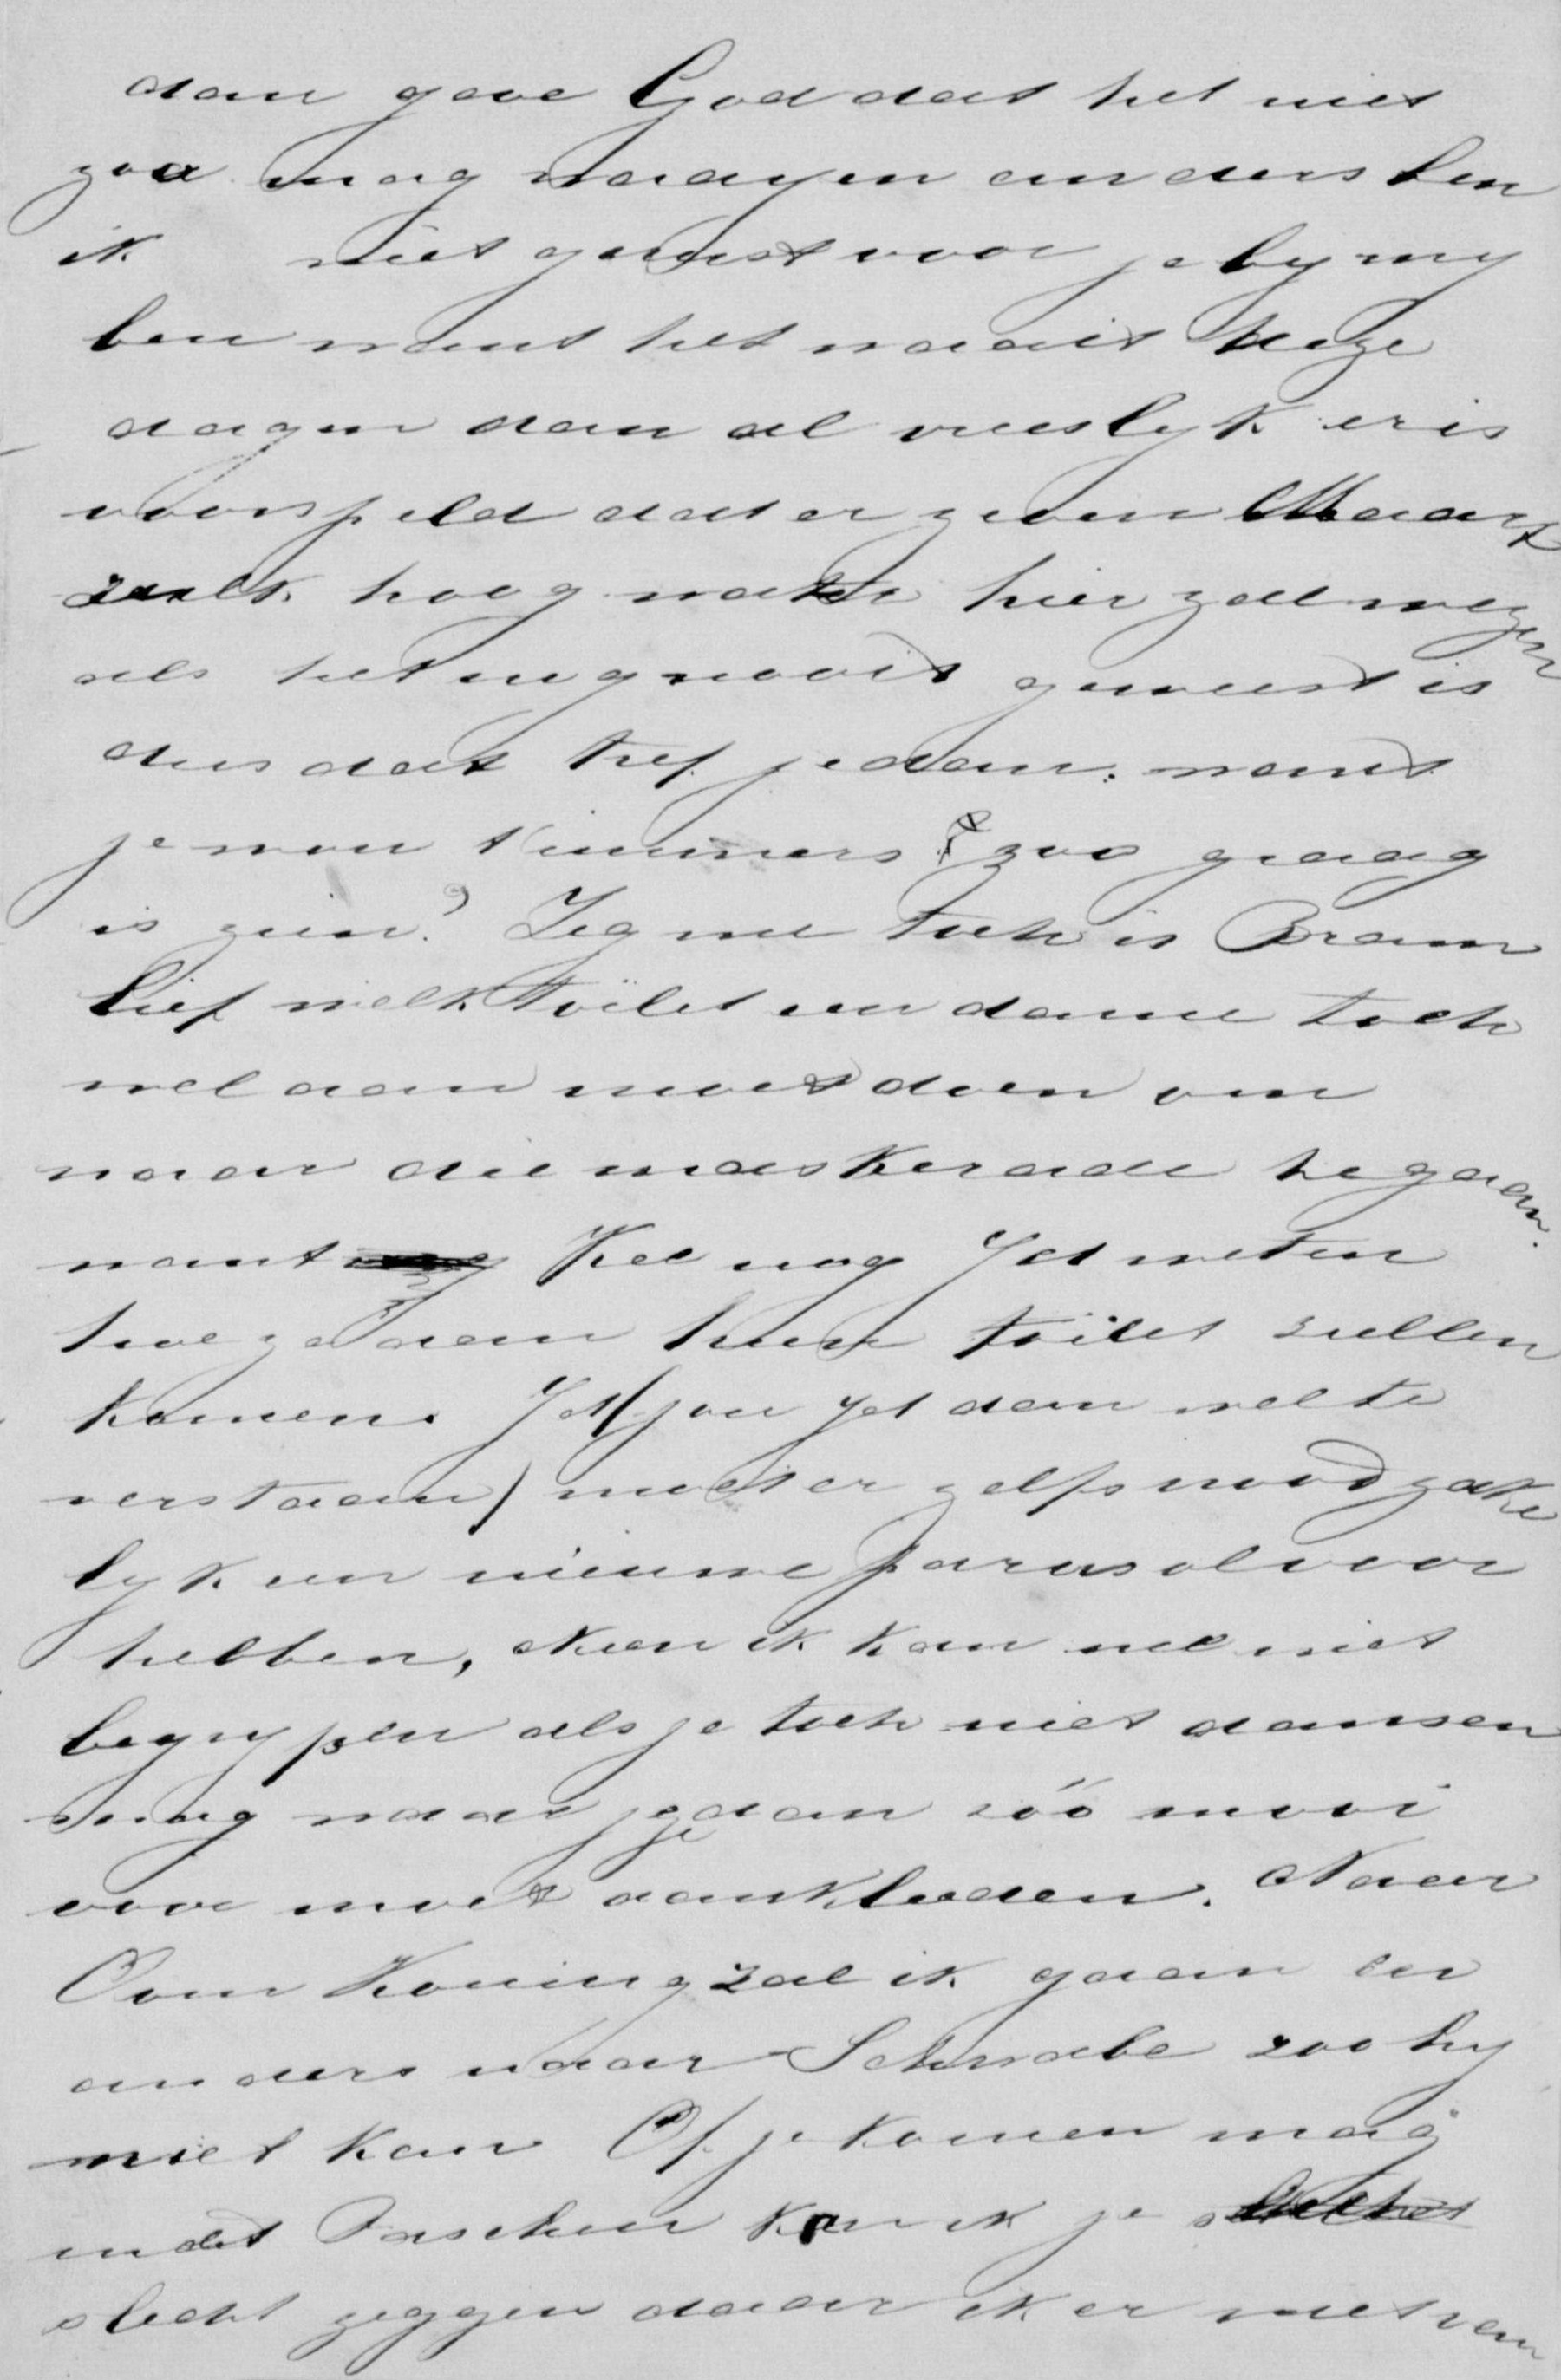 dan gave God dat het niet
zoo mag waayen anders ben
ik niet gerust voor je by my
ben want het waait deze
dagen dan al vreeslyk er is
voorspeld dat er zeven Maart
zulk hoog water hier zal wezen
als het nog nooit geweest is
dus dat tref je dan. want
je wou t immers zoo graag
is zien? Zeg me toch is Bram
lief welk toilet een dame toch
wel aan moet doen om
naar die maskerade te gaan.
want Kee nog Jet weten
hoe ze aan hun toilet zullen
komen. Jet (jou Jet dan wel te
verstaan) moet er zelfs noodzake
lyk een nieuwe parasol voor
hebben, Neen ik kan me niet
begrypen als je toch niet dansen
mag waar je je dan zóó mooi
voor moet aankleeden. Naar
Oom Koning zal ik gaan en
anders naar Schwabe zoo hy
niet kan Of je komen mag
met Paschen kan ik je slecht
slecht zeggen daar ik er met